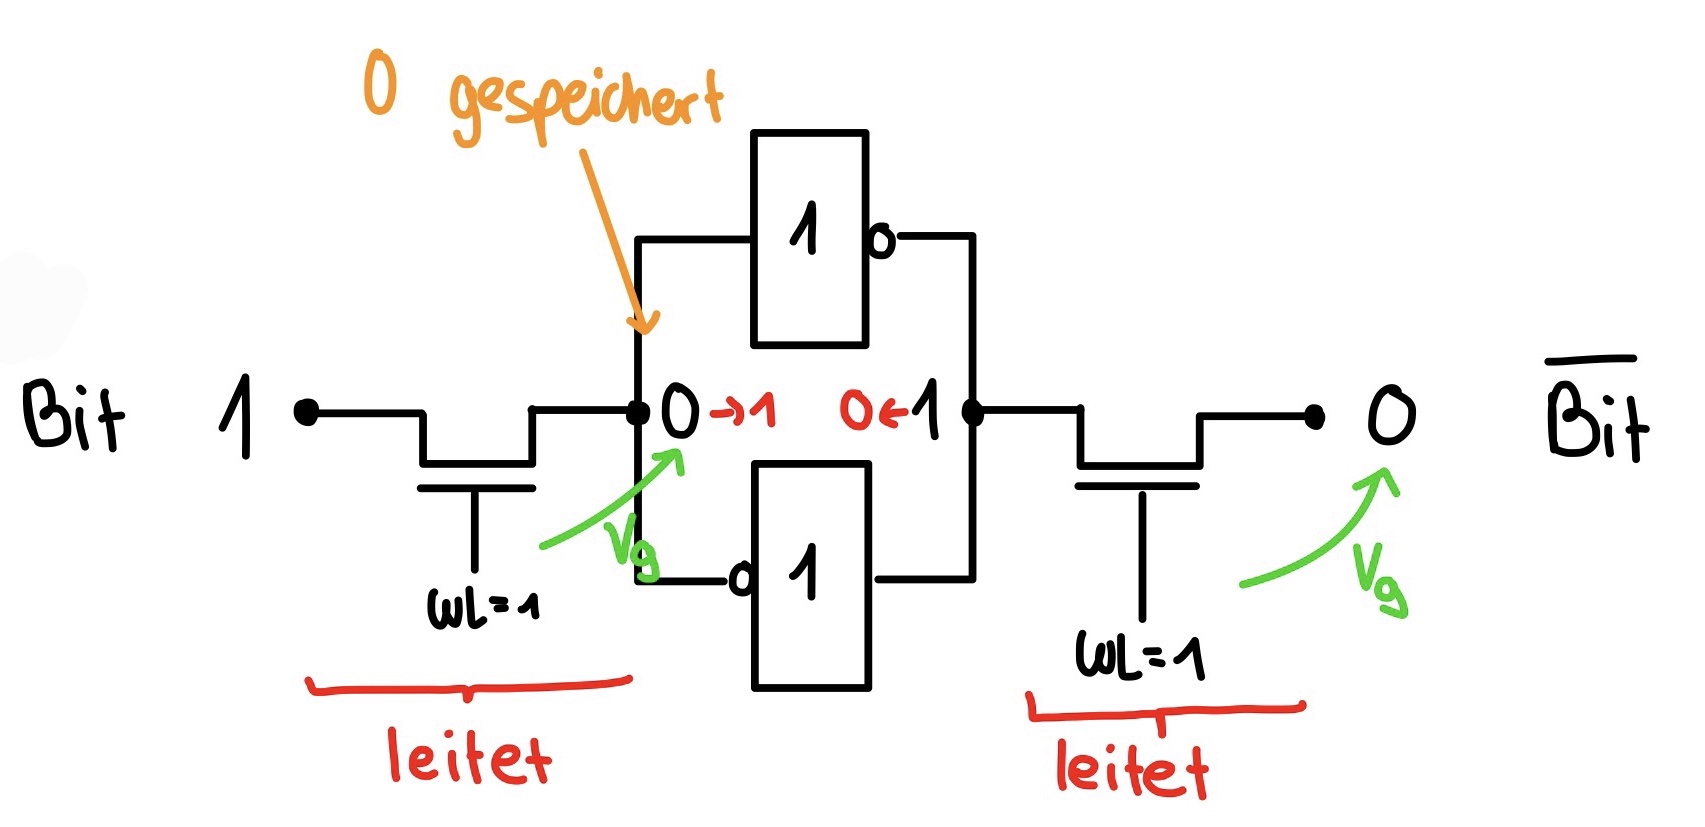 0 gespeichert
1
Bit 1 0 → 1 0 ← 1 0 B̅i̅t̅
Vg
1
Vg
WL=1
WL=1
leitet
leitet